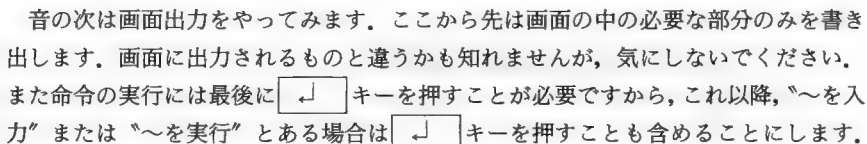 音の次は画面出力をやってみます．ここから先は画面の中の必要な部分のみを書き
出します．画面に出力されるものと違うかも知れませんが，気にしないでください．
また命令の実行には最後に↲キーを押すことが必要ですから，これ以降，〝〜を入
力〞または〝〜を実行〞とある場合は↲キーを押すことも含めることにします．